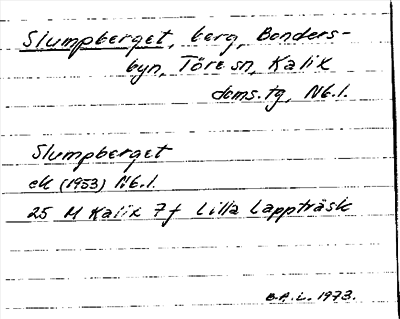 Slumpberget, berg, Bonders-
byn, Töre sn, Kalix
doms.tg, Nb.l.
Slumpberget
ek (1953) Nb.l.
25 M Kalix 7f Lilla Lappträsk
B.P.L. 1973.